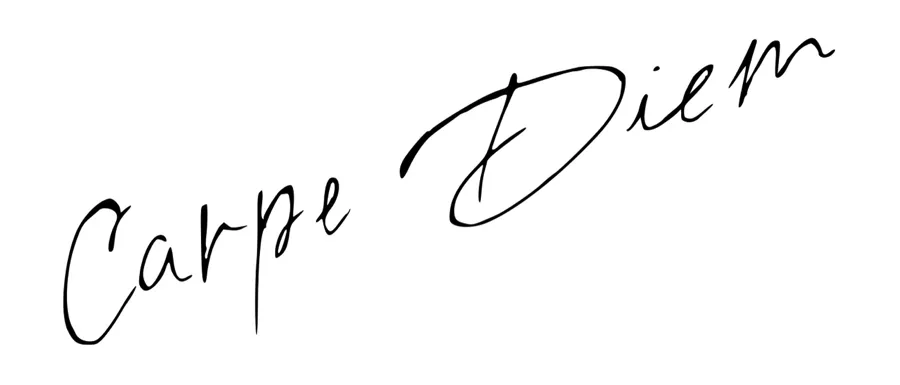 Carpe Diem